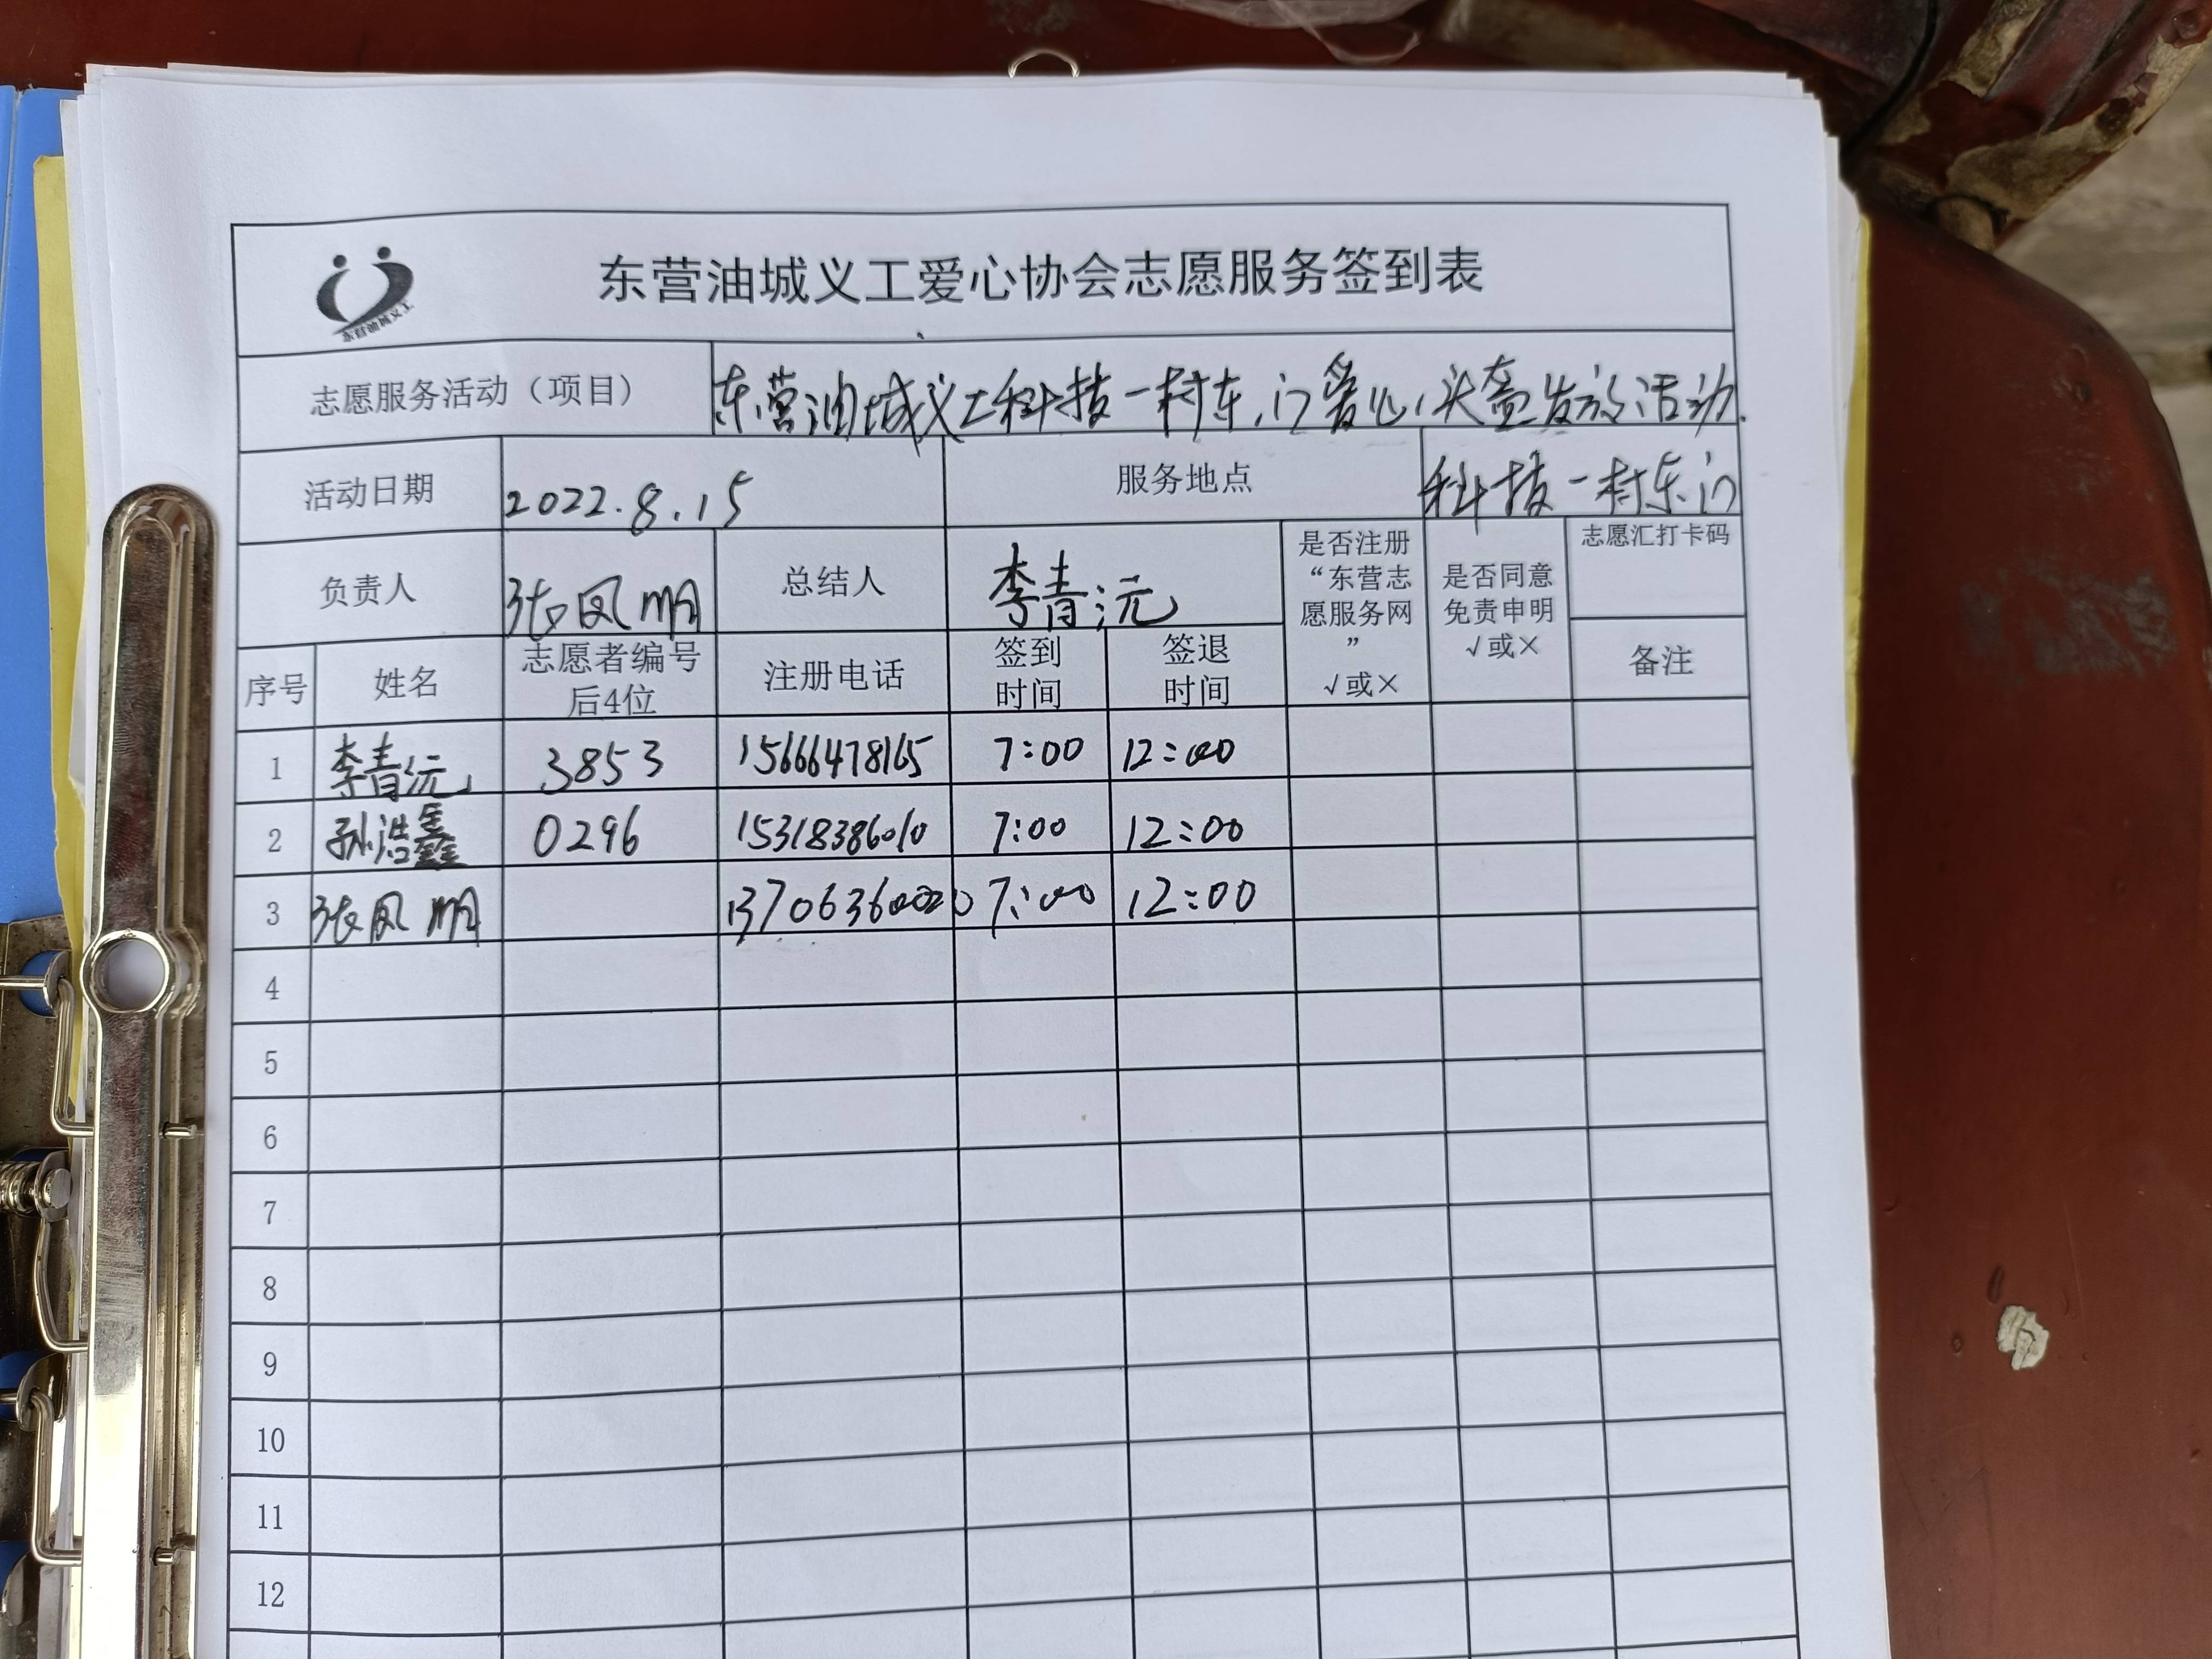 东营油城义工爱心协会志愿服务签到表
东营油城义工
志愿服务活动（项目） 东营油城义工科技一村东门爱心头盔发放活动.
活动日期 2022.8.15 服务地点 科技一村东门
负责人 张凤明 总结人 李青沅 是否注册“东营志愿服务网” √或× 是否同意免责申明 √或× 志愿汇打卡码
序号 姓名 志愿者编号后4位 注册电话 签到时间 签退时间 备注
1 李青沅 3853 15666478165 7:00 12:00
2 孙浩鑫 0296 15318386010 7:00 12:00
3 张凤明 7:00 12:00
4
5
6
7
8
9
10
11
12